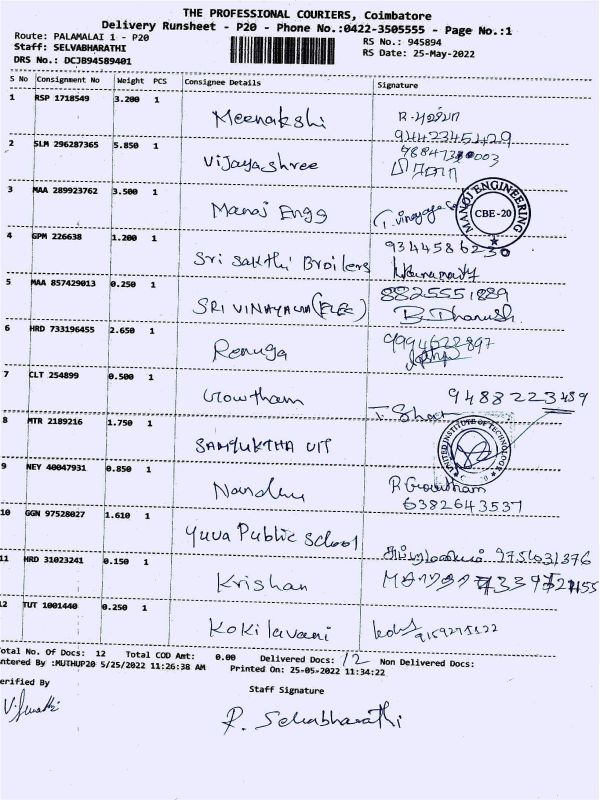 THE PROFESSIONAL COURIERS, Coimbatore
Delivery Runsheet - P20 - Phone No.:0422-3505555 - Page No.:1
Route: PALAMALAI 1 - P20
RS No.: 945894
Staff: SELVABHARATHI
RS Date: 25-May-2022
DRS No.: DCJB94589401
S No Consignment No Weight PCS Consignee Details Signature
1 RSP 1718549 3.200 1
Meenakshi
9442345429
2 SLM 296287365 5.850 1
Vijayashree
3 MAA 289923762 3.500 1
Manoj Engg
MANOJ ENGINEERING
CBE-20
4 GPM 226638 1.200 1
9344586230
Sri Sakthi Broilers
5 MAA 857429013 0.250 1
8825551889
SRI VINAYAGA (ELEC)
B. Dhanush
6 HRD 733196455 2.650 1
9994622897
Renuga
7 CLT 254899 0.500 1
9488223489
Gowtham
8 MTR 2189216 1.750 1
UNITED INSTITUTE OF TECHNOLOGY
SAMYUKTHA UIT
9 NEY 40047931 0.850 1
Nandhu
R. Gowtham
6382643537
10 GGN 97528027 1.610 1
Yuva Public School
9751031376
11 HRD 31023241 0.150 1
Krishan
12 TUT 1001440 0.250 1
Kokilavani
9159275122
Total No. Of Docs: 12 Total COD Amt: 0.00 Delivered Docs: 12 Non Delivered Docs:
Entered By :MUTHUP20 5/25/2022 11:26:38 AM Printed On: 25-05-2022 11:34:22
Verified By
Staff Signature
R. Selvabharathi